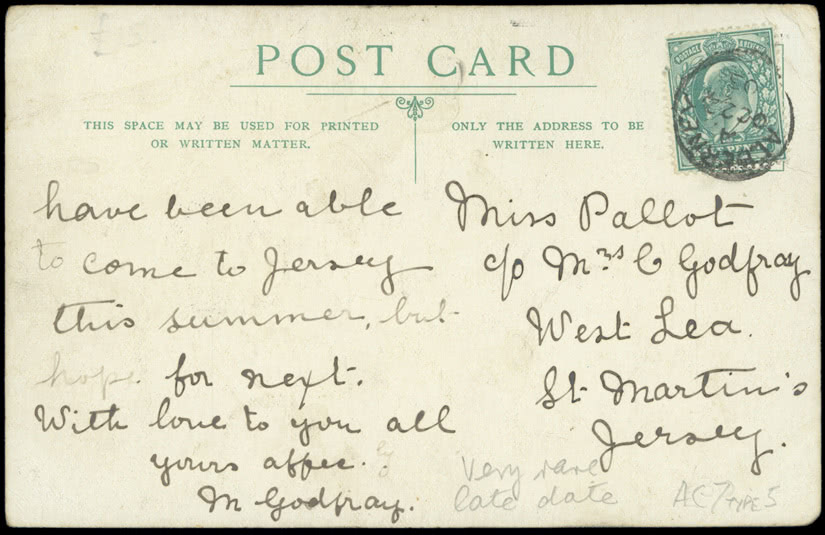 POST CARD
THIS SPACE MAY BE USED FOR PRINTED
OR WRITTEN MATTER.
ONLY THE ADDRESS TO BE
WRITTEN HERE.
POSTAGE & REVENUE
ALDERNEY
have been able
to come to Jersey
this summer, but
hope for next.
With love to you all
yours affec.
M Godfray.
Miss Pallot
c/o Mrs C Godfray
West Lea.
St. Martin's
Jersey.
Very rare
late date
AC7 TYPE 5